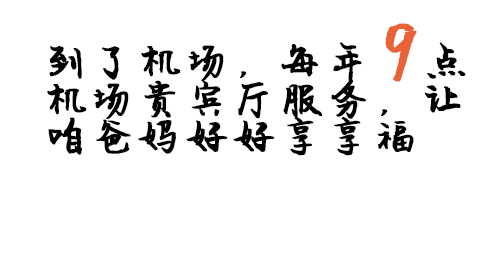 到了机场，每年9点
机场贵宾厅服务，让
咱爸妈好好享享福